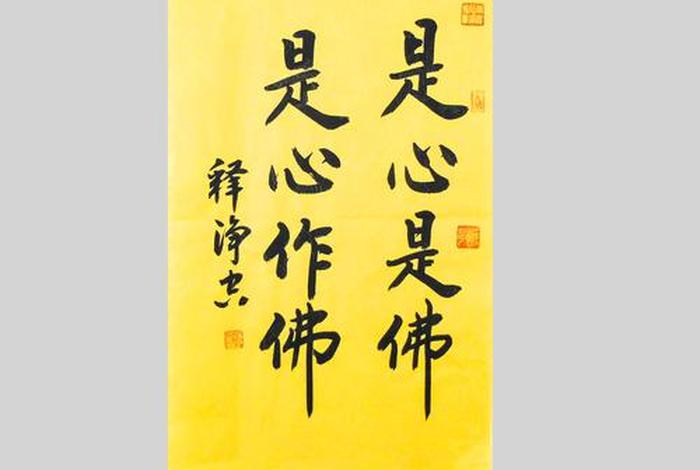 是心是佛
是心作佛
释净空